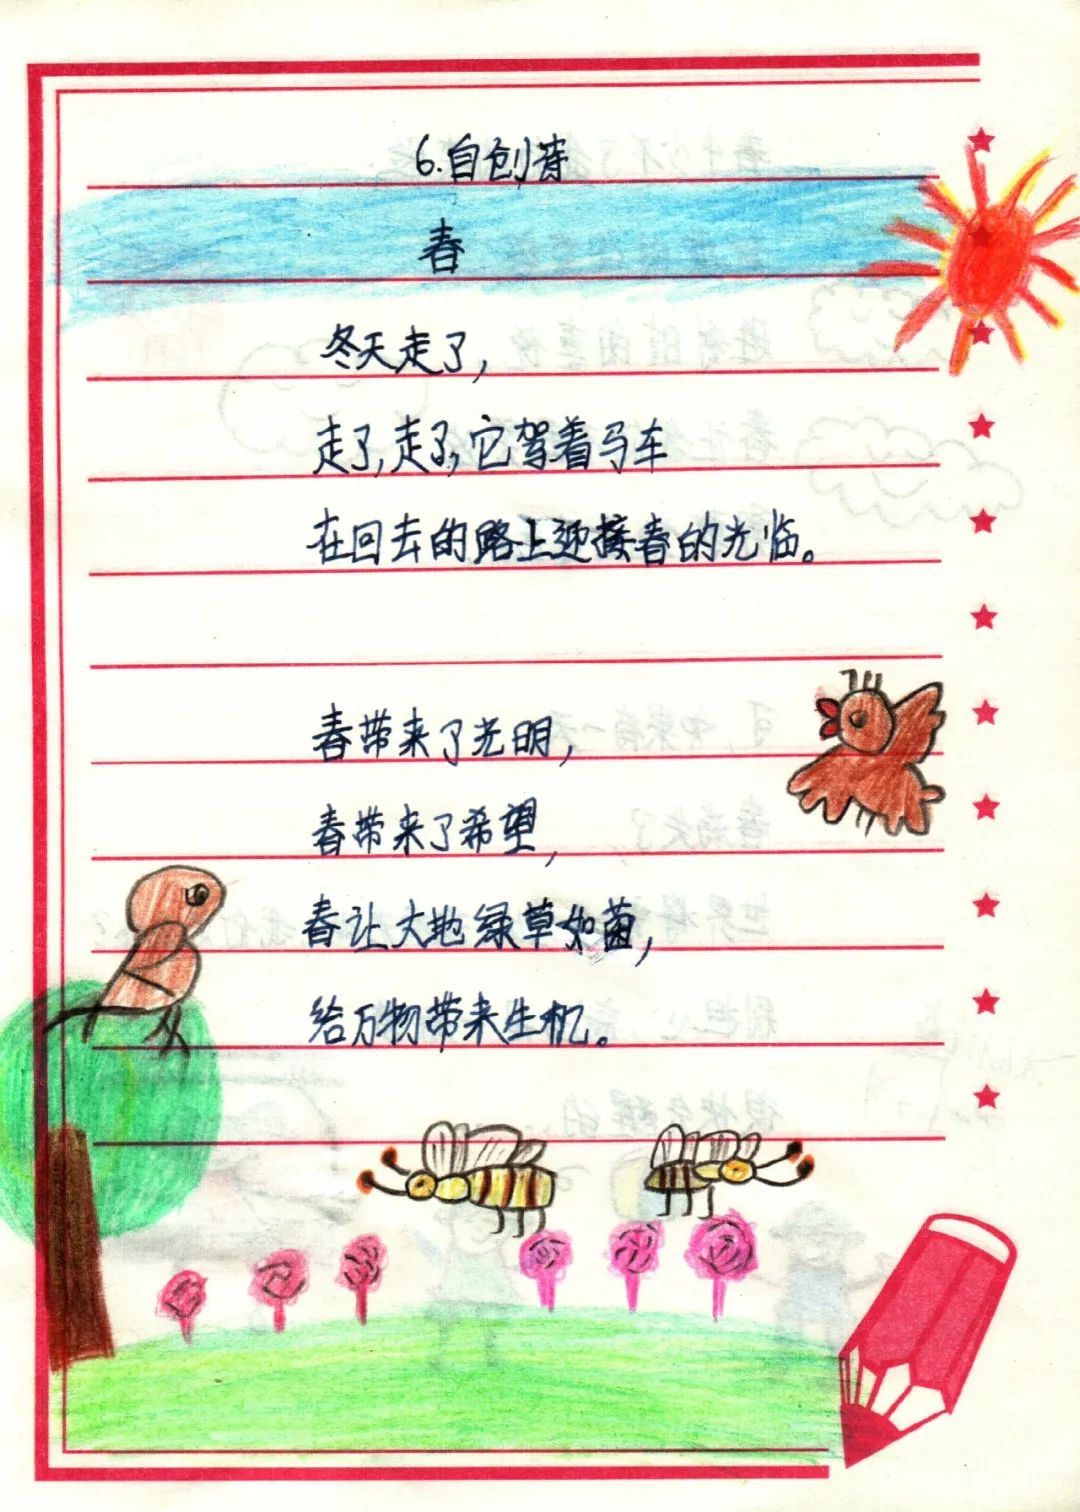 6.自创诗
春
冬天走了,
走了,走了,它驾着马车
在回去的路上迎接春的光临。
春带来了光明,
春带来了希望,
春让大地绿草如茵,
给万物带来生机。